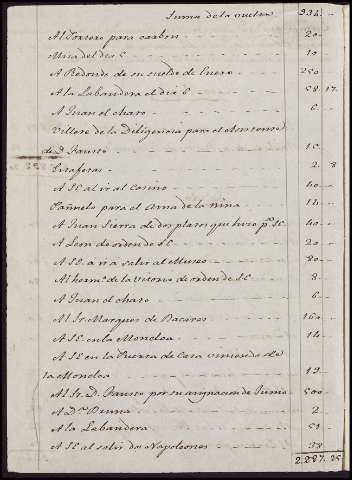 Suma de la vuelta 334. -
Al Tornero para carbon 20. -
Misa del dia 6 10. -
A Redondo de su sueldo de Enero 250 -
A la Labandera el dia 6 58. 17.
A Juan el charo 6. -
Villete de la Diligencia para el
de D. Fausto 15. -
2. 8
A S.E. al ir al Casino 40. -
Pañuelo para el Ama de la niña 14. -
A Juan Sierra de dos plazos que tuvo pr. S.E. 40. -
A Leon de orden de S.E. 20. -
A S.E. a ir a salir al Museo 80. -
Al herno. de la Vitoria de orden de S.E. 8. -
A Juan el charo 6. -
Al Sr. Marques de 160. -
A S.E. en la Moncloa 14. -
A S.E. en la Puerta de Casa viniendo de
la Moncloa 19. -
Al Sr. D. Fausto por su asignacion de Junio 500 -
A Da. Bruna 2 -
A la Labandera 51 -
A S.E. al salir dos Napoleones 38 -
2.287. 25.